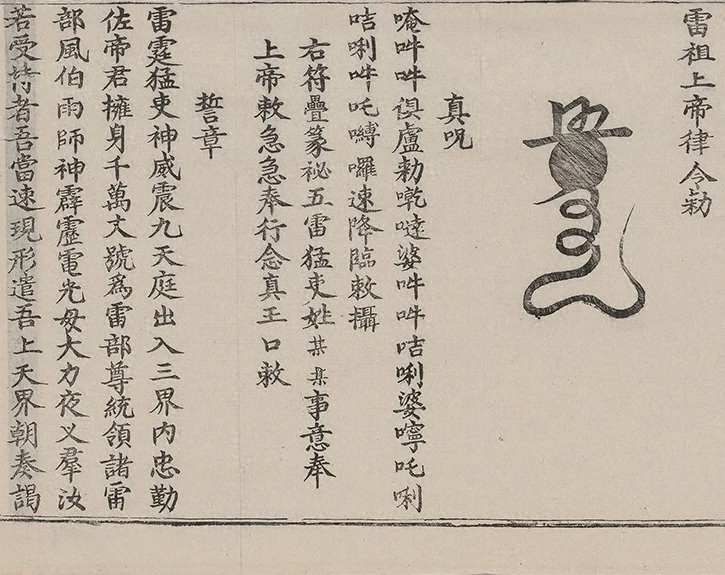 雷祖上帝律令勑
真咒
唵吽吽俱盧勑㗖噠婆吽吽咭唎婆嚀吒唎
咭唎吽吒嚩囉速降臨敕攝
右符疊篆祕五雷猛吏姓某某事意奉
上帝敕急急奉行念真王口敕
誓章
雷霆猛吏神威震九天庭出入三界内忠勤
佐帝君擁身千萬丈號為雷部尊統領諸雷
部風伯雨師神霹靂電光母大力夜叉羣汝
若受持者吾當速現形遣吾上天界朝奏謁